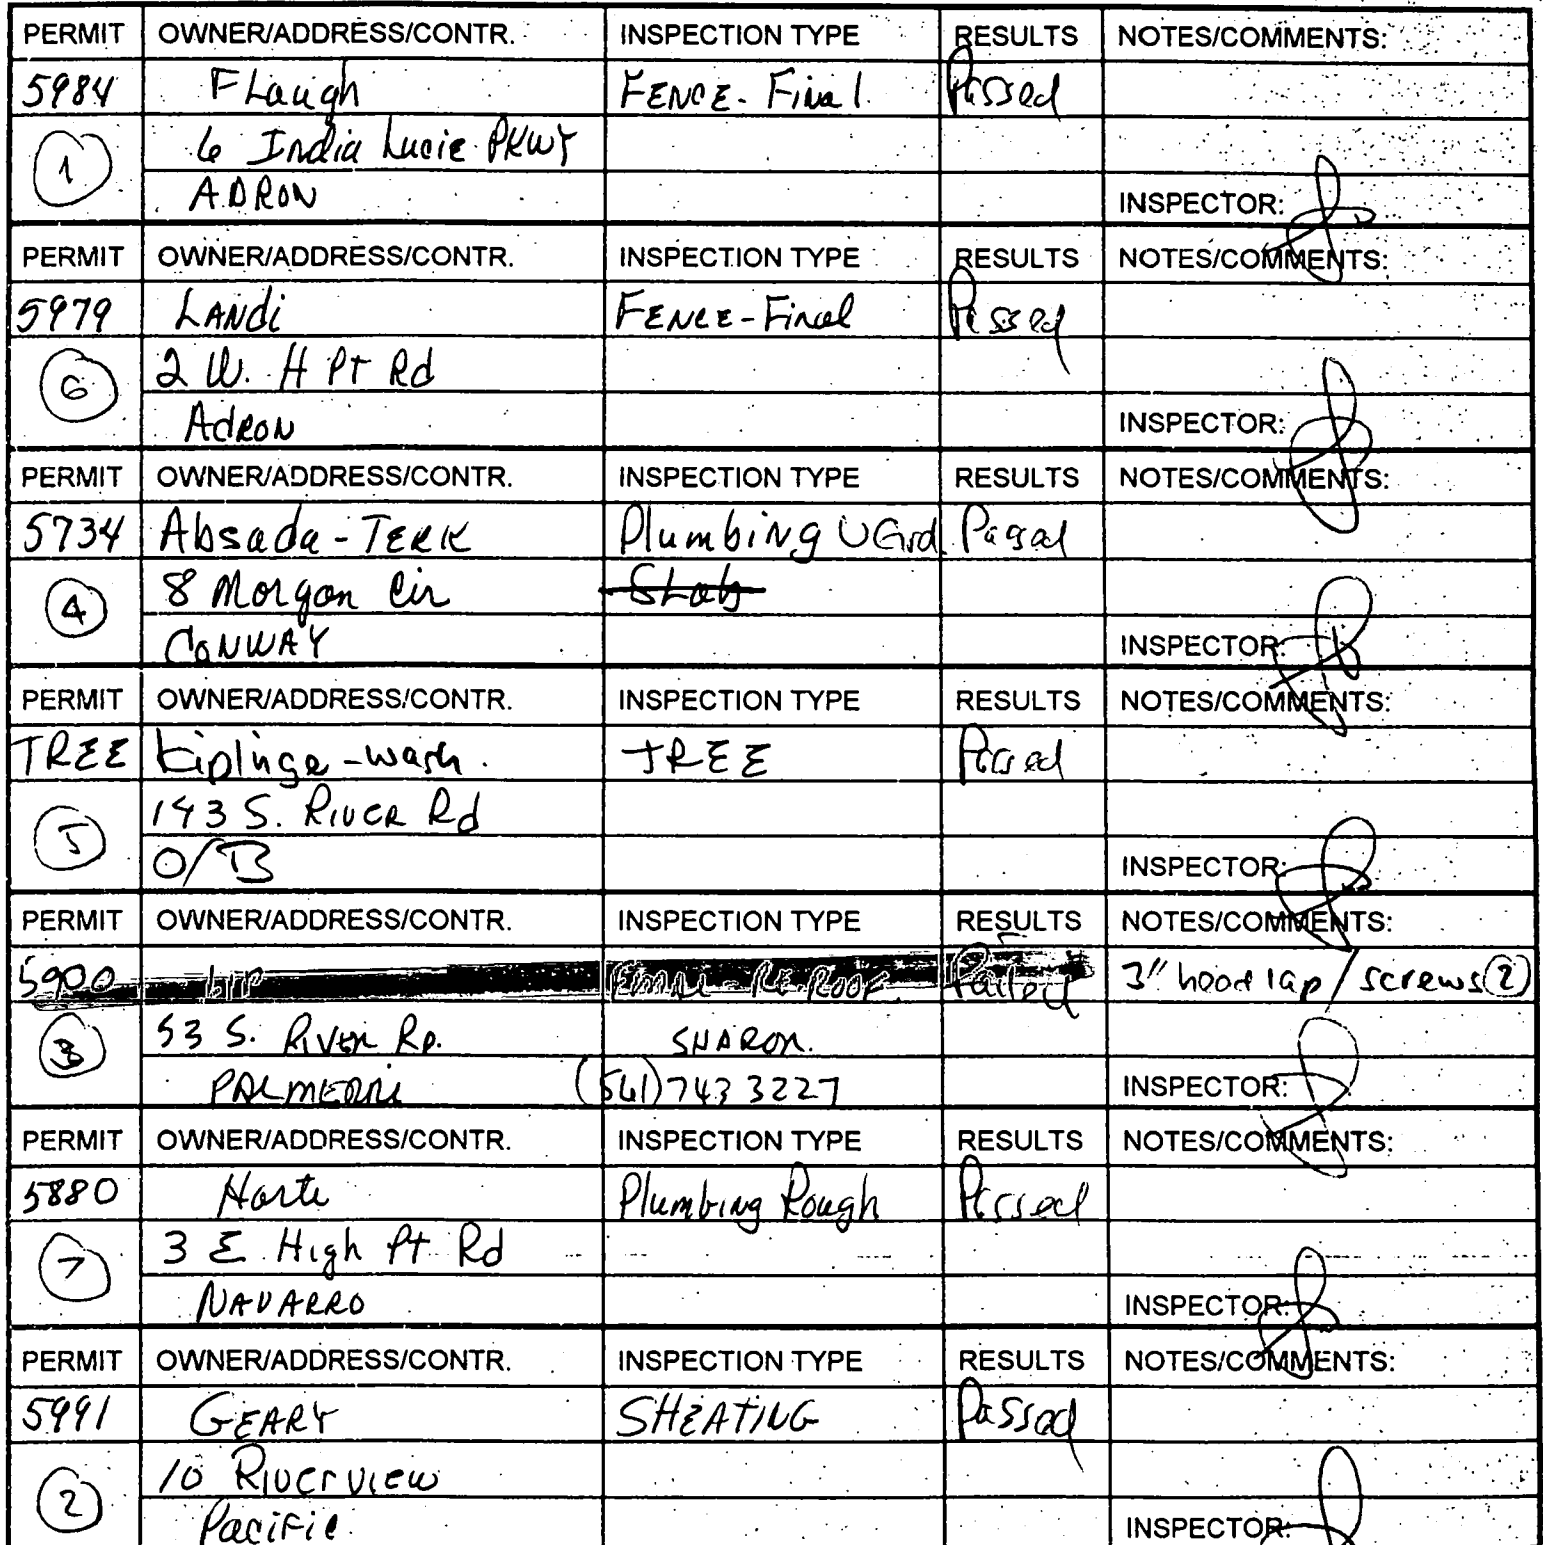 PERMIT OWNER/ADDRESS/CONTR. INSPECTION TYPE RESULTS NOTES/COMMENTS:
5984 FLaugh FENCE - Final. Passed
1 6 India Lucie PKWY
ADRON INSPECTOR:
PERMIT OWNER/ADDRESS/CONTR. INSPECTION TYPE RESULTS NOTES/COMMENTS:
5979 LANdi FENCE - Final Passed
6 2 W. H Pt Rd
AdRON INSPECTOR:
PERMIT OWNER/ADDRESS/CONTR. INSPECTION TYPE RESULTS NOTES/COMMENTS:
5734 Absada - TERK Plumbing UGrd. Passed
4 8 Morgan Cir SLab
CONWAY INSPECTOR:
PERMIT OWNER/ADDRESS/CONTR. INSPECTION TYPE RESULTS NOTES/COMMENTS:
TREE Kiplinge - wash. TREE Passed
5 143 S. RIVER Rd
O/B INSPECTOR:
PERMIT OWNER/ADDRESS/CONTR. INSPECTION TYPE RESULTS NOTES/COMMENTS:
5900 FINAL - RE-ROOF Failed 3" head lap / screws (2)
3 53 S. RIVER RD. SHARON.
(561) 743 3227 INSPECTOR:
PERMIT OWNER/ADDRESS/CONTR. INSPECTION TYPE RESULTS NOTES/COMMENTS:
5880 Harte Plumbing Rough Passed
7 3 E High Pt Rd
NAVARRO INSPECTOR:
PERMIT OWNER/ADDRESS/CONTR. INSPECTION TYPE RESULTS NOTES/COMMENTS:
5991 GEARY SHEATING Passed
2 10 Riverview
Pacific INSPECTOR: